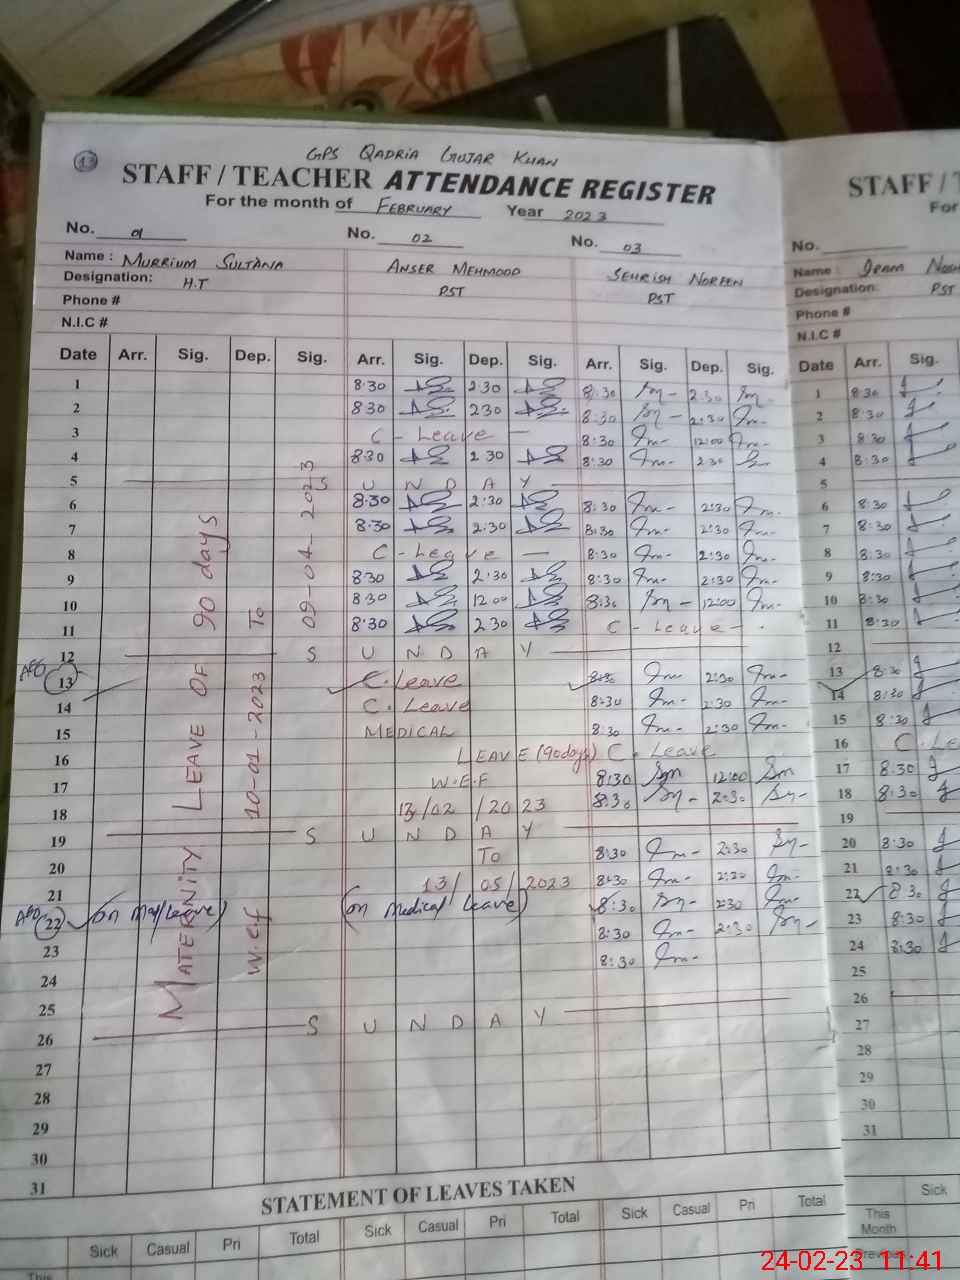 13
GPS QADRIA GUJAR KHAN
STAFF / TEACHER ATTENDANCE REGISTER
For the month of FEBRUARY Year 2023
No. 01 No. 02 No. 03
Name : MURRIUM SULTANA ANSER MEHMOOD SEHRISH NOREEN
Designation: H.T PST PST
Phone #
N.I.C #
Date Arr. Sig. Dep. Sig. Arr. Sig. Dep. Sig. Arr. Sig. Dep. Sig.
1 8:30 2:30 8:30 2:30
2 8:30 2:30 8:30 2:30
3 C - Leave 8:30 12:00
4 8:30 2:30 8:30 2:30
5 S U N D A Y
6 8:30 2:30 8:30 2:30
7 8:30 2:30 8:30 2:30
8 C - Leave 8:30 2:30
9 8:30 2:30 8:30 2:30
10 8:30 12:00 8:30 12:00
11 8:30 2:30 C - Leave
12 S U N D A Y
13 C. Leave 8:30 2:30
14 C. Leave 8:30 2:30
15 MEDICAL 8:30 2:30
16 LEAVE (90 days) C. Leave
17 W.E.F 8:30 12:00
18 13/02/2023 8:30 2:30
19 S U N D A Y
20 TO 8:30 2:30
21 13/05/2023 8:30 2:30
22 (on Mat/Leave) (on Medical Leave) 8:30 2:30
23 8:30 2:30
24 8:30
25
26 S U N D A Y
27
28
29
30
31
MATERNITY LEAVE OF 90 days
W.ef 10-01-2023 To 09-04-2023
STATEMENT OF LEAVES TAKEN
Sick Casual Pri Total Sick Casual Pri Total Sick Casual Pri Total
This
STAFF / T
For
No.
Name
Designation: PST
Phone #
N.I.C #
Date Arr. Sig.
1 8:30
2 8:30
3 8:30
4 8:30
5
6 8:30
7 8:30
8 8:30
9 8:30
10 8:30
11 8:30
12
13 8:30
14 8:30
15 8:30
16 C. Le
17 8:30
18 8:30
19
20 8:30
21 8:30
22 8:30
23 8:30
24 8:30
25
26
27
28
29
30
31
Sick
This
Month
24-02-23 11:41